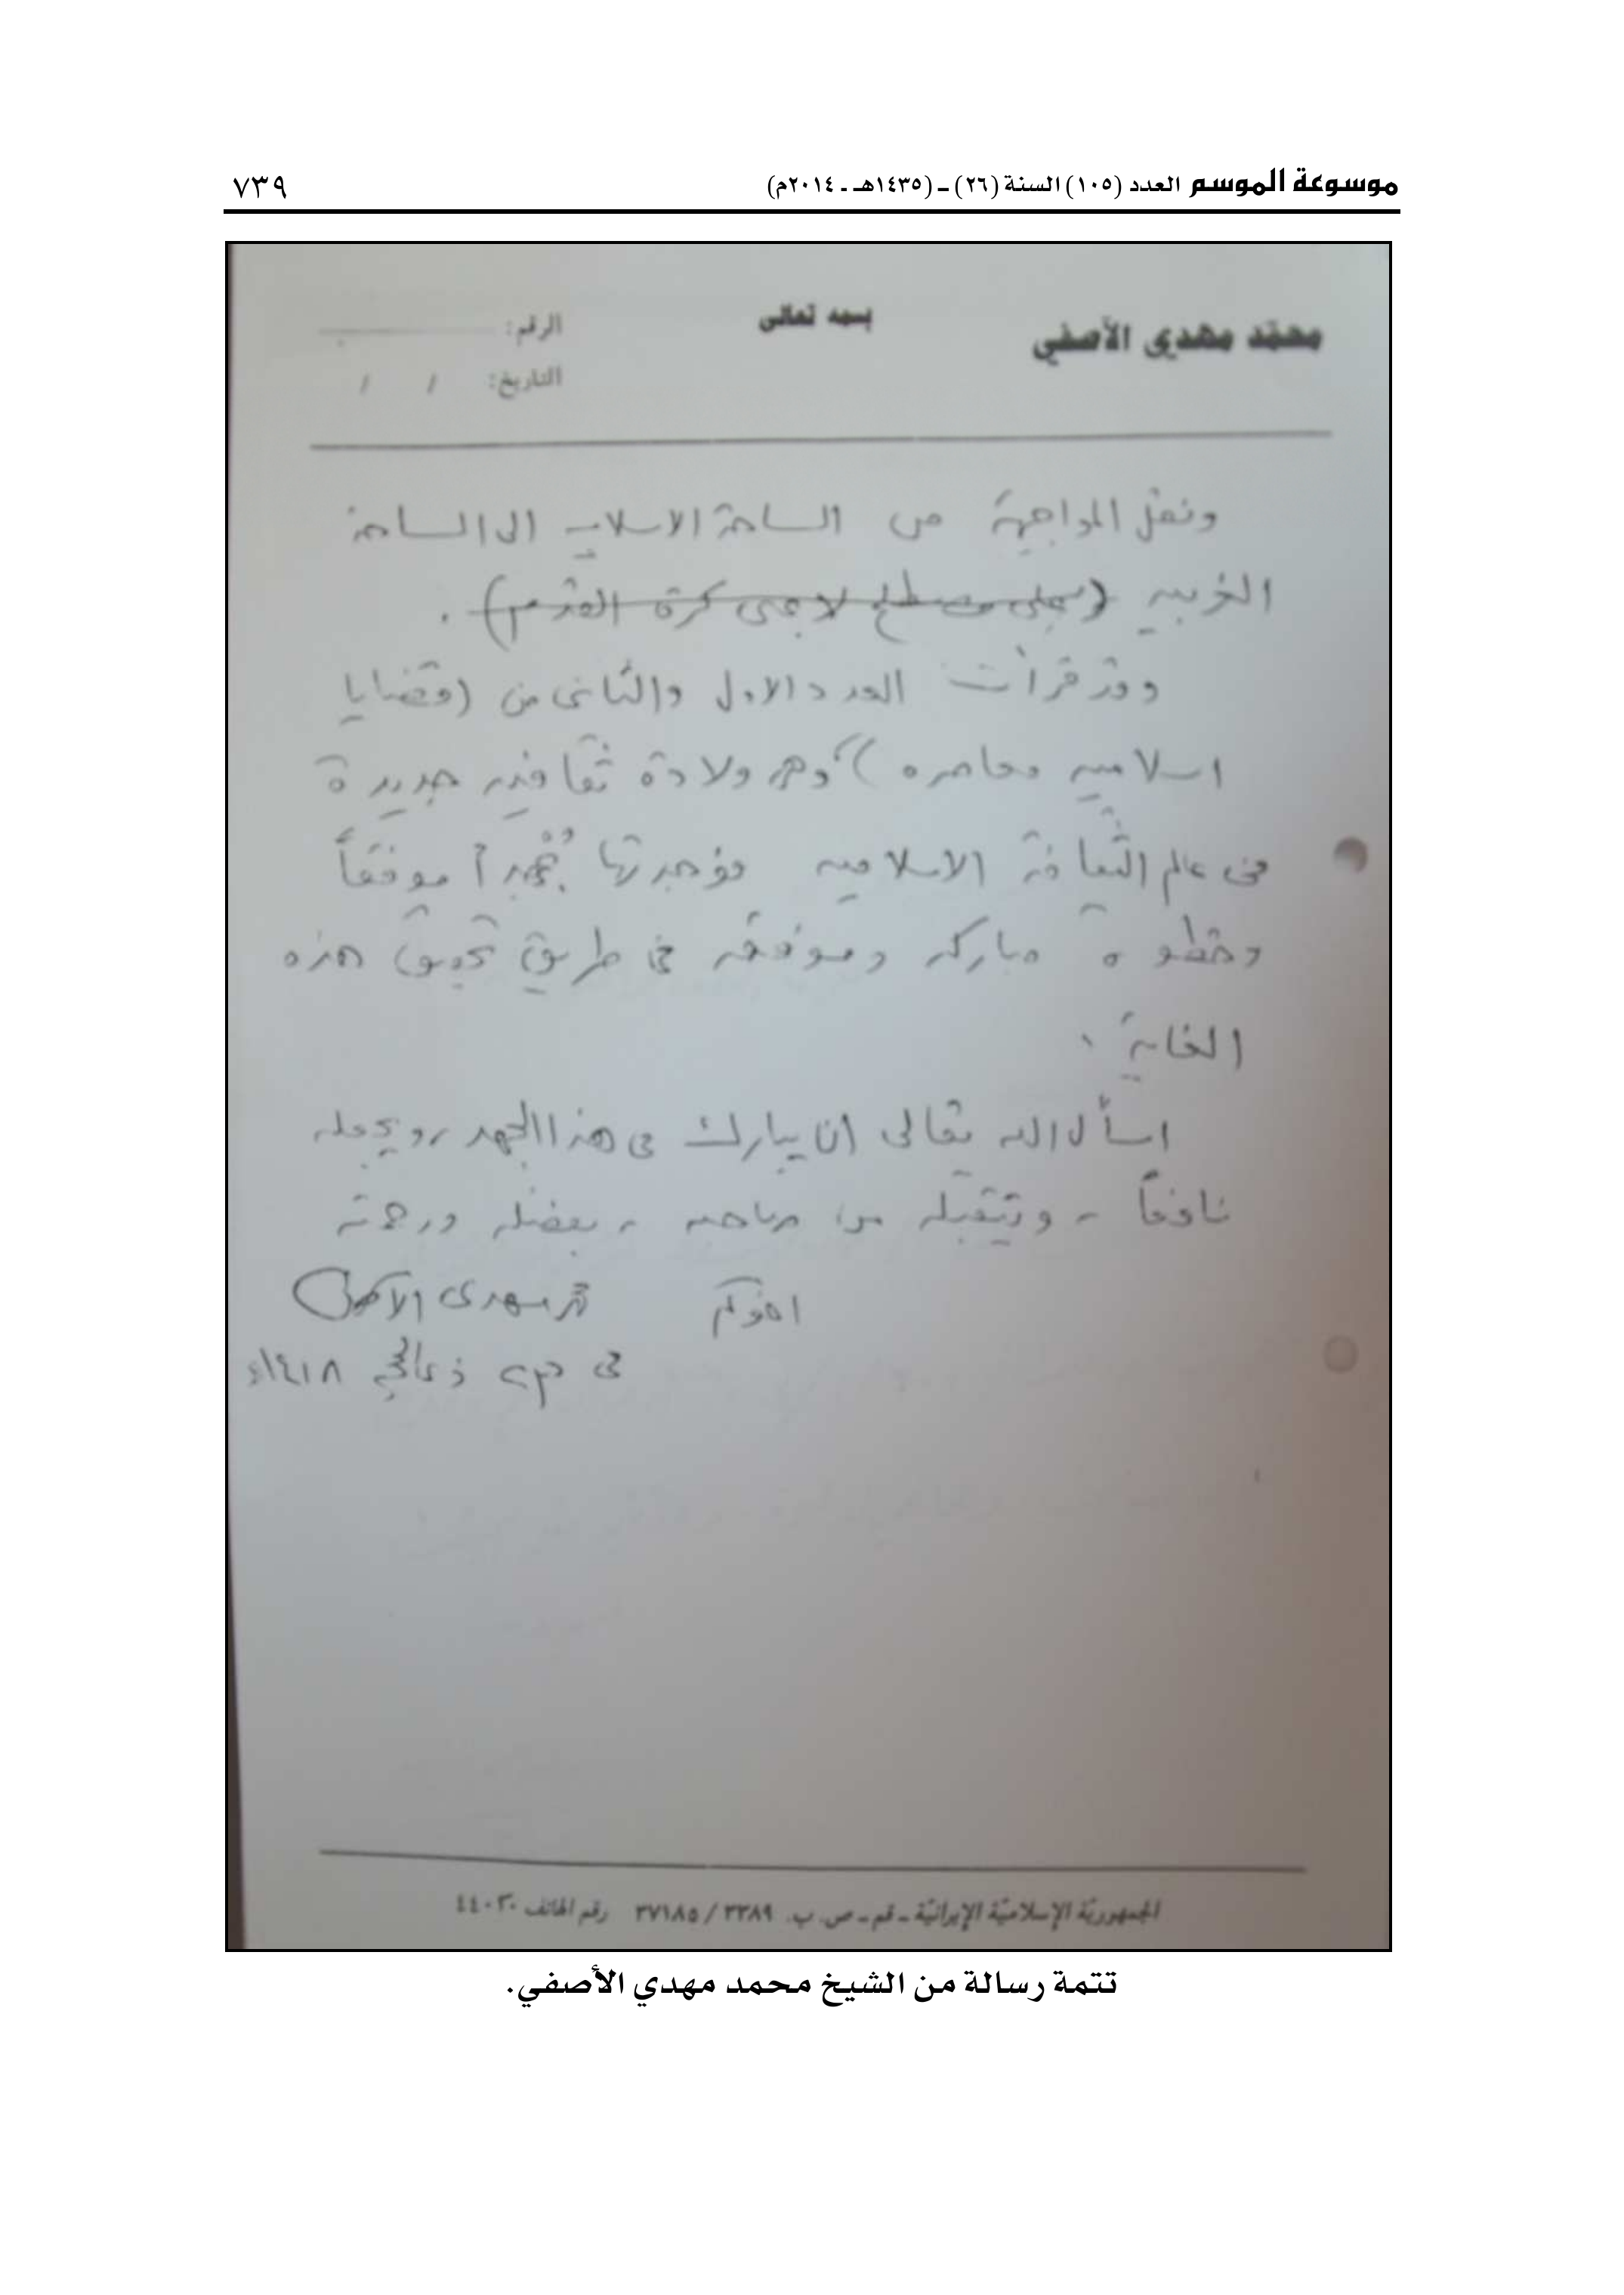 موسوعة الموسم العدد (١٠٥) السنة (٢٦) ـ (١٤٣٥هـ ـ ٢٠١٤م)
٧٣٩
محمّد مهدي الآصفي
بسمه تعالى
الرقم:
التاريخ: / /
ونقل المواجهة من الساحة الاسلامية الى الساحة
الغربية (على مصطلح لاعبي كرة القدم).
وقد قرأت العدد الاول والثاني من (قضايا
اسلامية معاصره) وهي ولادة ثقافية جديدة
في عالم الثقافة الاسلامية فوجدتها جُهداً موفقاً
وخطوة مباركه وموفقه في طريق تحقيق هذه
الغاية.
اسأل الله تعالى ان يبارك في هذا الجهد، ويجعله
نافعاً، ويتقبله من صاحبه، بفضله ورحمته
اخوكم محمد مهدي الآصفي
في ذي الحجة ١٤١٨
الجمهوريّة الإسلاميّة الإيرانيّة ـ قم ـ ص. ب. ٣٣٨٩ / ٣٧١٨٥ رقم الهاتف ٤٤٠٣٠
تتمة رسالة من الشيخ محمد مهدي الأصفي.